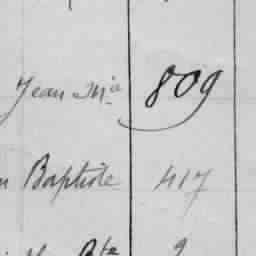 Jean Mie 809
Baptiste 417
Bte 9